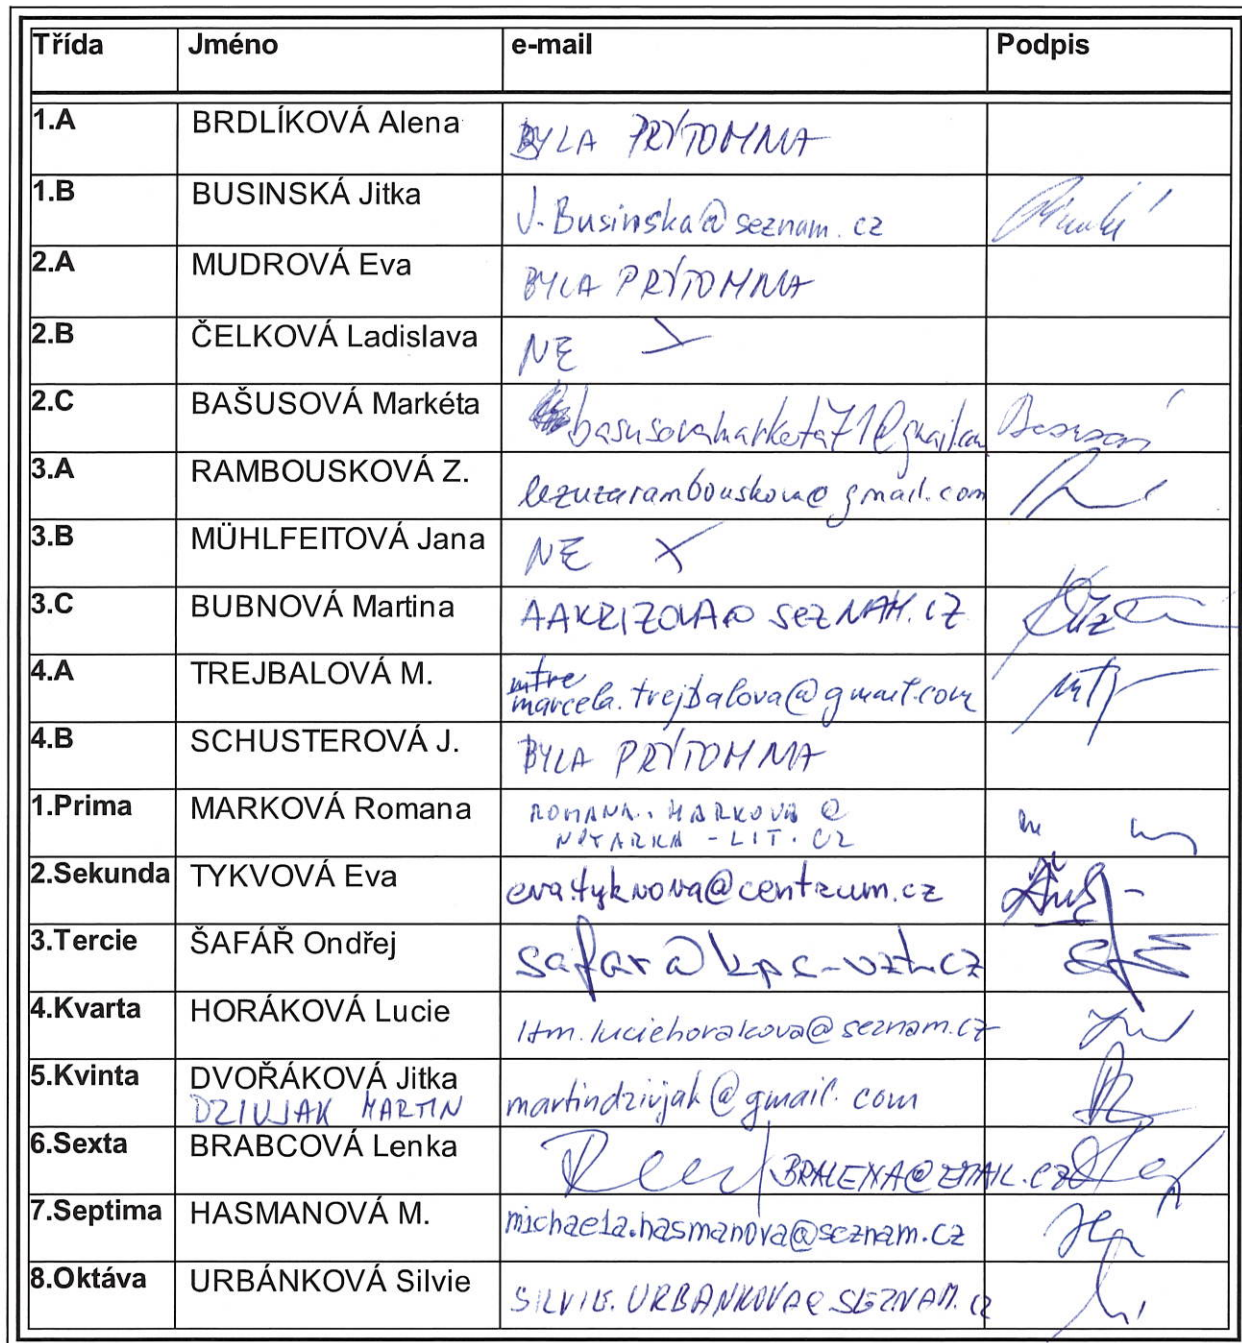 Třída Jméno e-mail Podpis
1.A BRDLÍKOVÁ Alena BYLA PŘÍTOMNA
1.B BUSINSKÁ Jitka J.Businska@seznam.cz
2.A MUDROVÁ Eva BYLA PŘÍTOMNA
2.B ČELKOVÁ Ladislava NE
2.C BAŠUSOVÁ Markéta basusovamarketa71@gmail.com
3.A RAMBOUSKOVÁ Z.
3.B MÜHLFEITOVÁ Jana NE X
3.C BUBNOVÁ Martina AAKRIZOVA@SEZNAM.CZ
4.A TREJBALOVÁ M. mtre
marcela.trejbalova@gmail.com
4.B SCHUSTEROVÁ J. BYLA PŘÍTOMNA
1.Prima MARKOVÁ Romana ROMANA.MARKOVA@
NOTARKA-LIT.CZ
2.Sekunda TYKVOVÁ Eva eva.tykvova@centrum.cz
3.Tercie ŠAFÁŘ Ondřej safar@kpc-vzt.cz
4.Kvarta HORÁKOVÁ Lucie ltm.luciehorakova@seznam.cz
5.Kvinta DVOŘÁKOVÁ Jitka martindzivjak@gmail.com
DZIVJAK MARTIN
6.Sexta BRABCOVÁ Lenka BRALENXA@EMAIL.CZ
7.Septima HASMANOVÁ M. michaela.hasmanova@seznam.cz
8.Oktáva URBÁNKOVÁ Silvie SILVIE.URBANKOVA@SEZNAM.CZ